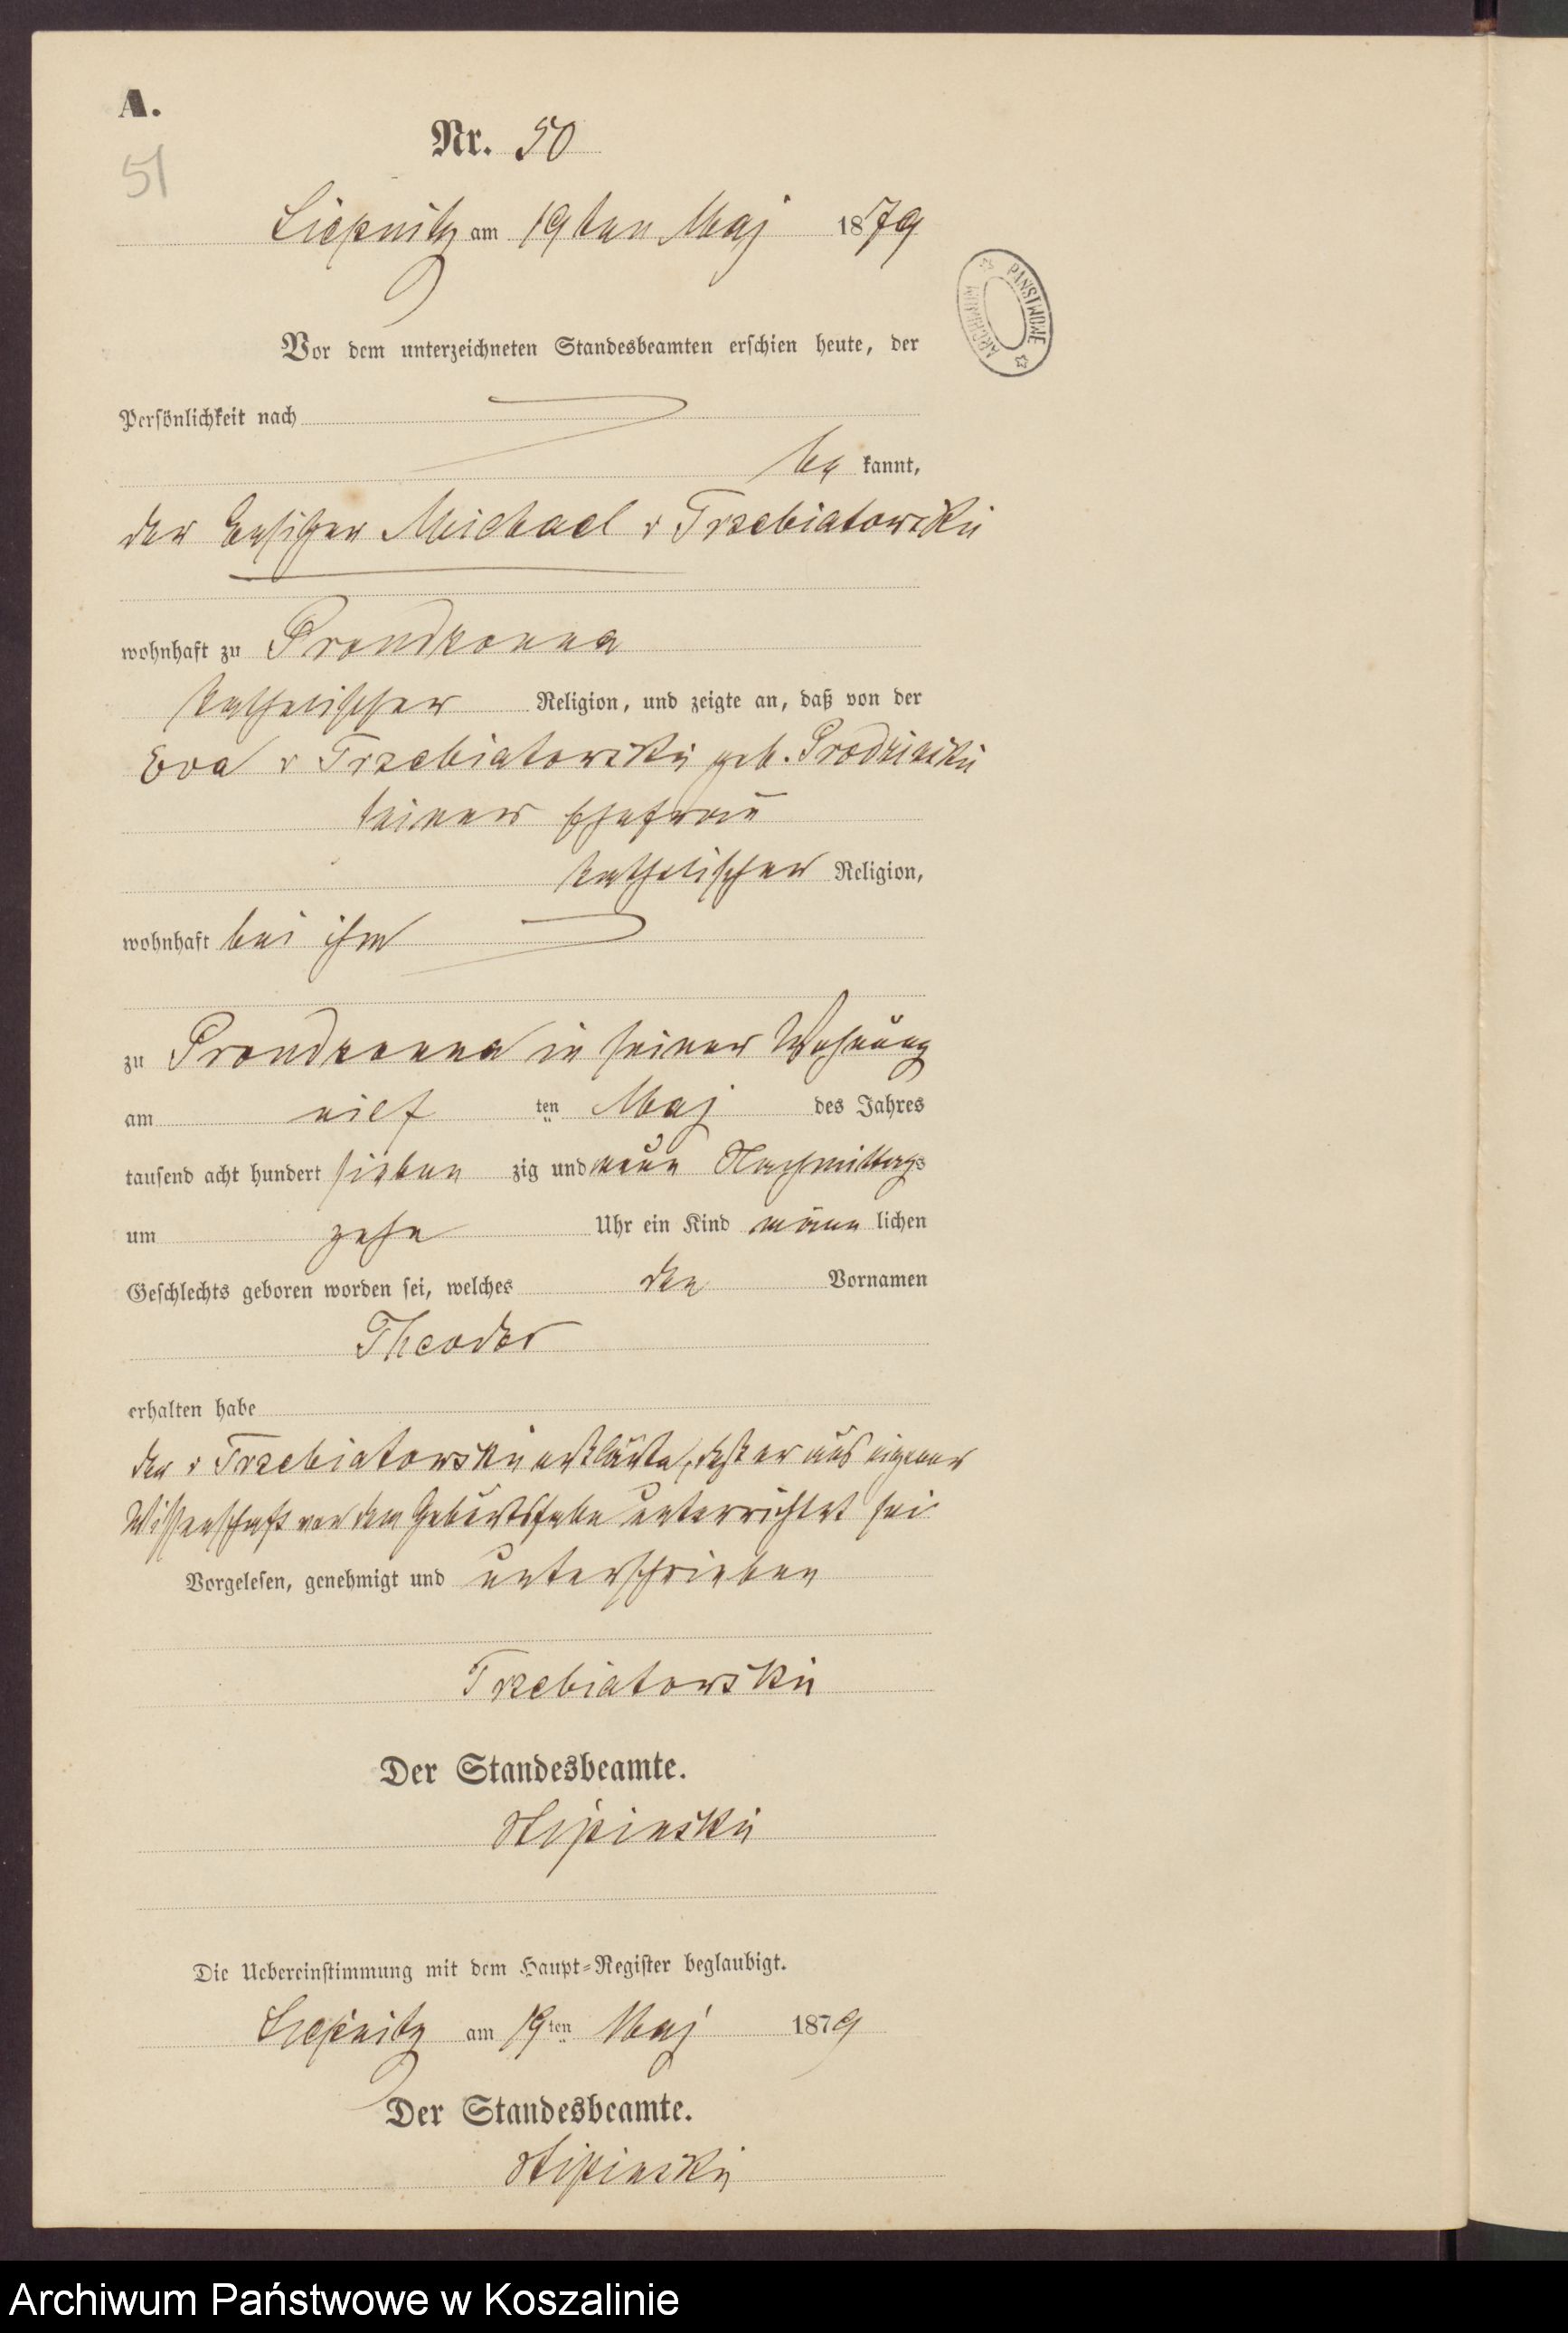 A.
Nr. 50
51
Liepnitz am 19ten Maj 1879
PAŃSTWOWE
ARCHIWUM
Vor dem unterzeichneten Standesbeamten erschien heute, der
Persönlichkeit nach
be kannt,
der Besitzer Michael v Trzebiatowski
wohnhaft zu Prondzonna
katholischer Religion, und zeigte an, daß von der
Eva v Trzebiatowski geb.
seiner Ehefrau
katholischer Religion,
wohnhaft bei ihm
zu Prondzonna in seiner Wohnung
am eilf ten Maj des Jahres
tausend acht hundert sieben zig und neun Nachmittags
um zehn Uhr ein Kind männ lichen
Geschlechts geboren worden sei, welches den Vornamen
Theodor
erhalten habe
der v Trzebiatowski erklärte, daß er aus eigener
Wissenschaft von dem Geburtsfalle unterrichtet sei
Vorgelesen, genehmigt und unterschrieben
Trzebiatowski
Der Standesbeamte.
Die Uebereinstimmung mit dem Haupt-Register beglaubigt.
Liepnitz am 19ten Maj 1879
Der Standesbeamte.
Archiwum Państwowe w Koszalinie